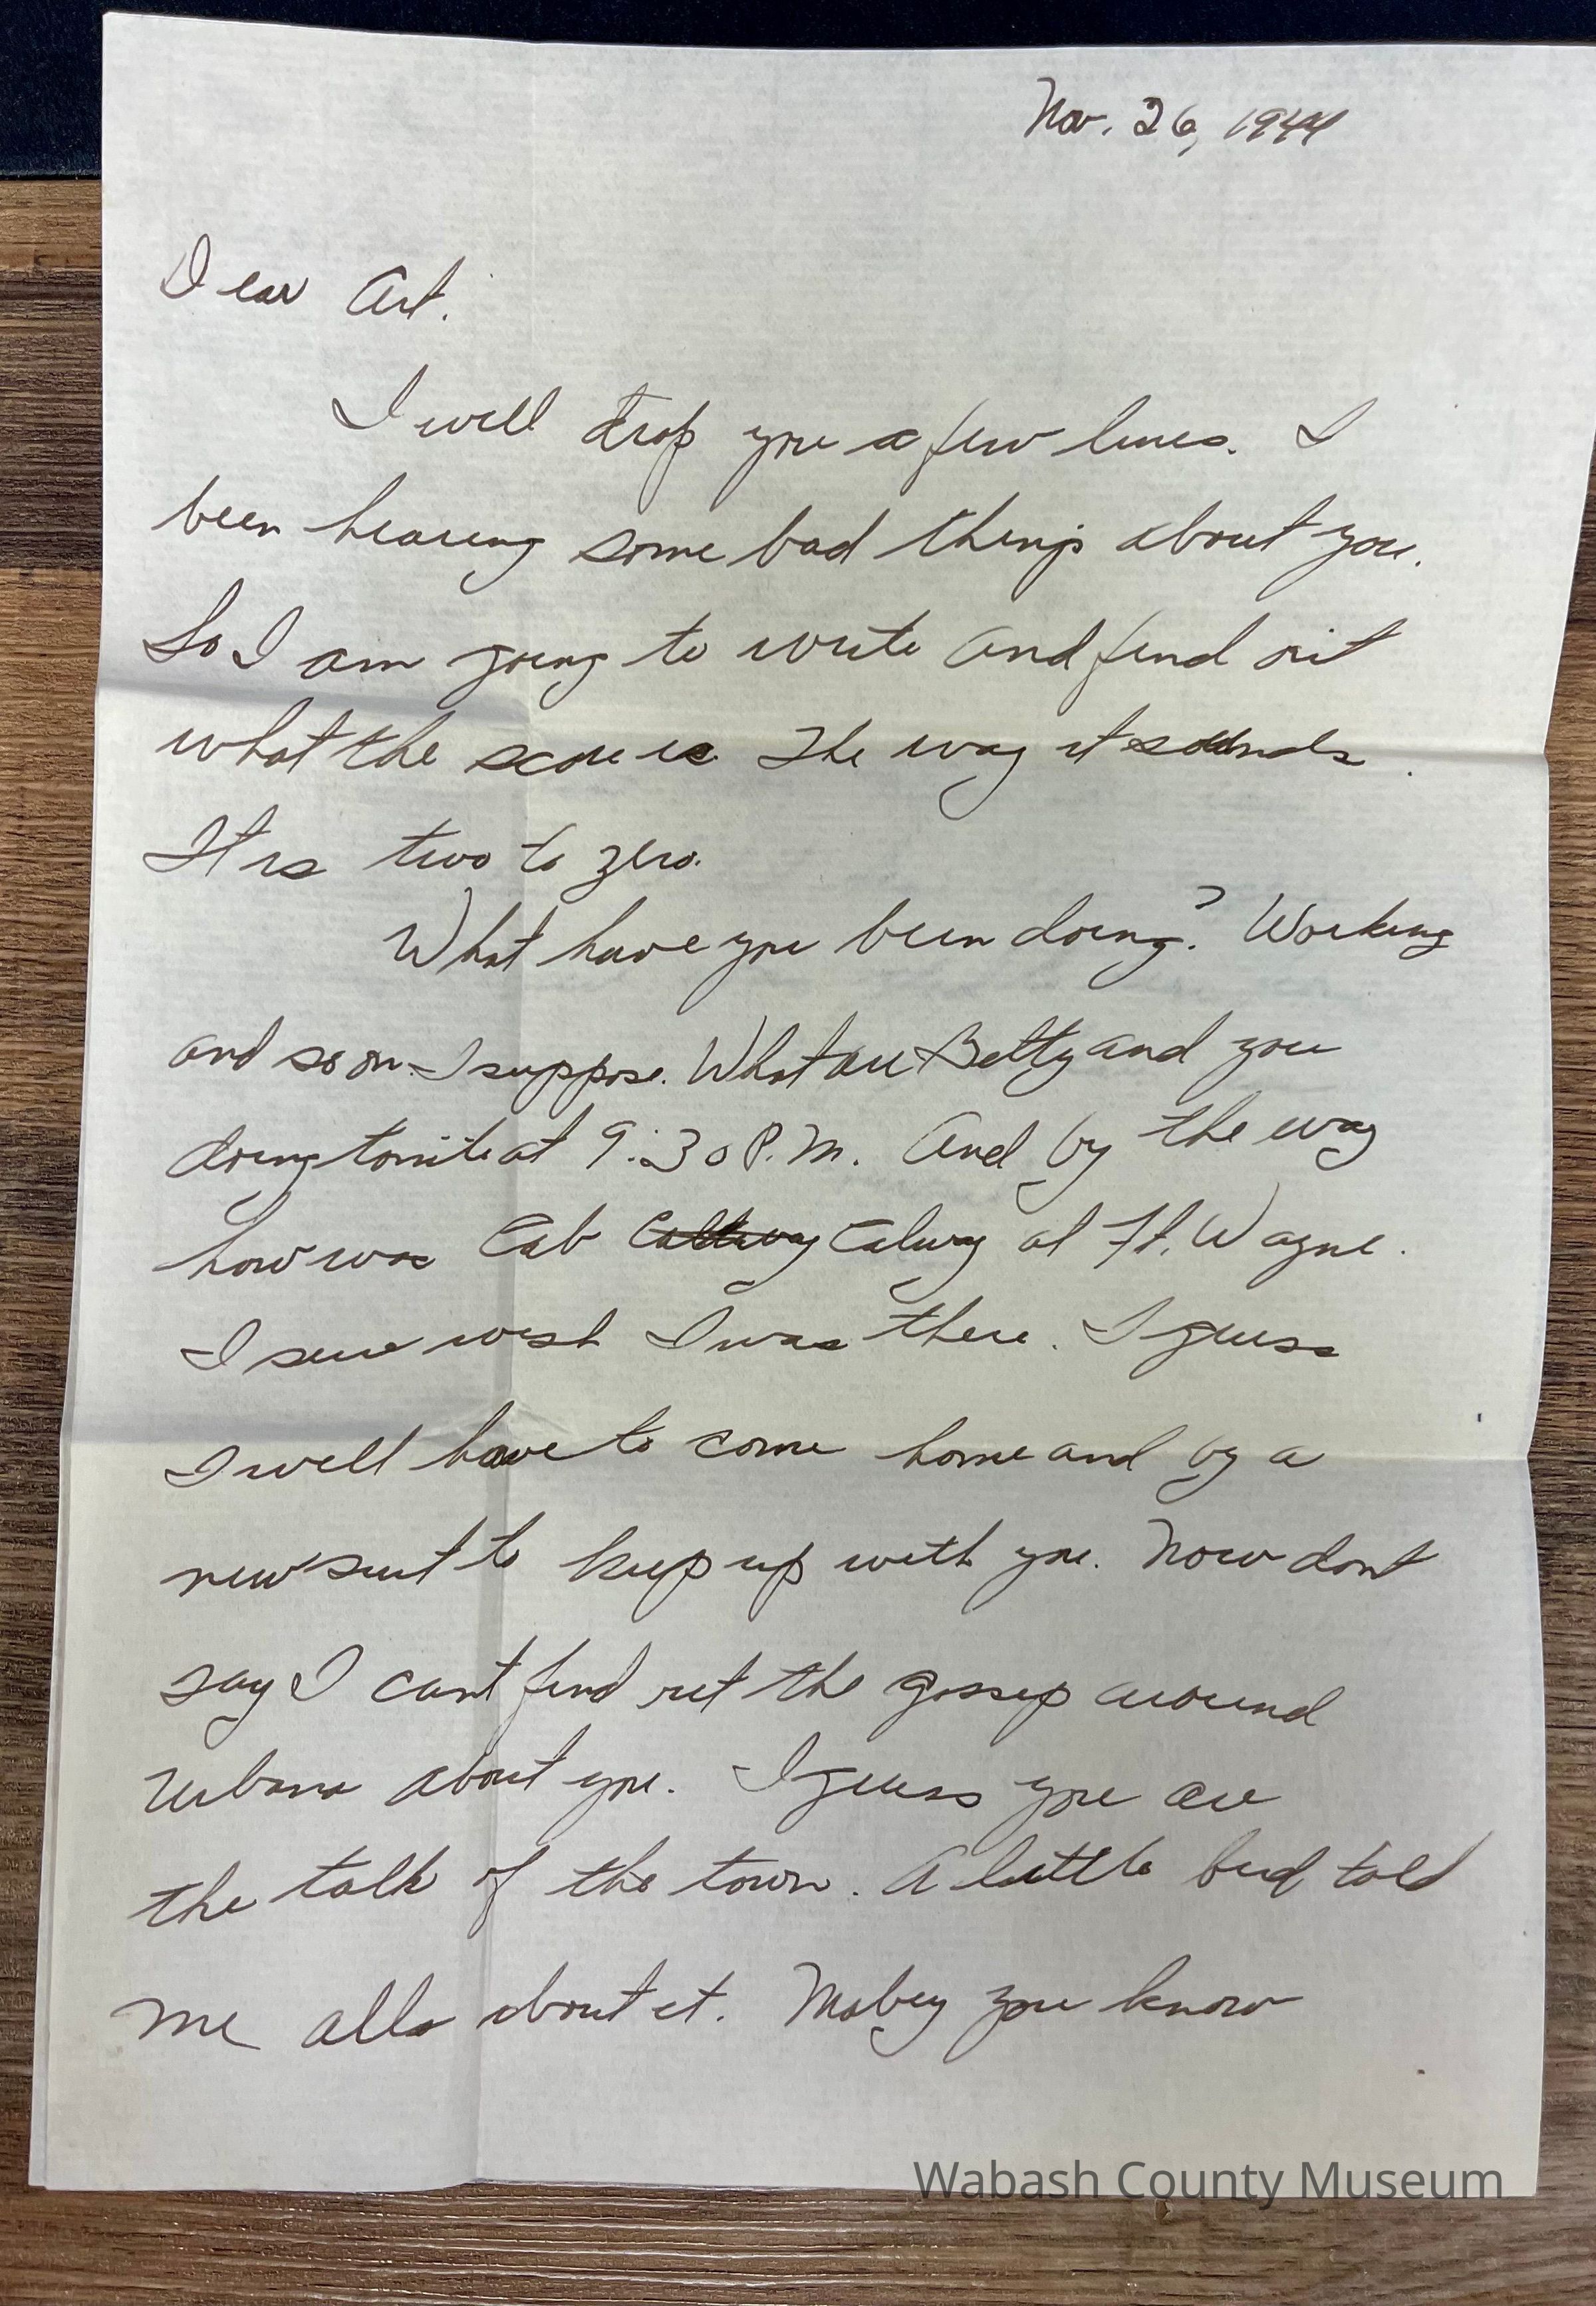 Nov. 26, 1944
Dear Art.
I will drop you a few lines. I
been hearing some bad things about you.
So I am going to write and find out
what the score is. The way it sounds.
It is two to zero.
What have you been doing? Working
and so on I suppose. What are Betty and you
doing tonite at 9:30 P.M. And by the way
how was Cab Calway at Ft. Wayne.
I sure wish I was there. I guess
I will have to come home and by a
new suit to keep up with you. Now dont
say I cant find out the gossip around
Urbana about you. I guess you are
the talk of the town. A little bird told
me all about it. Mabey you know
Wabash County Museum